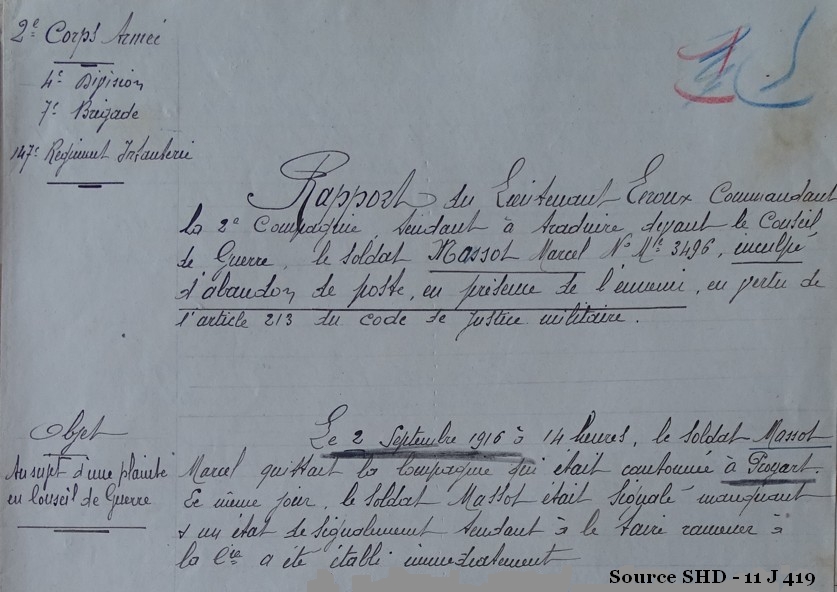 2e Corps Armée
4e Division
7e Brigade
147e Régiment Infanterie
Rapport du Lieutenant Leroux Commandant
la 2e Compagnie, tendant à traduire devant le Conseil
de Guerre, le soldat Massot Marcel No Mle 3496, inculpé
d'abandon de poste, en présence de l'ennemi, en vertu de
l'article 213 du code de Justice militaire.
Objet
Au sujet d'une plainte
en Conseil de Guerre
Le 2 Septembre 1916 à 14 heures, le soldat Massot
Marcel quittait la Compagnie qui était cantonnée à Proyart.
Le même jour, le soldat Massot était signalé manquant
& un état de signalement tendant à le faire ramener à
la Cie a été établi immédiatement
Source SHD - 11 J 419